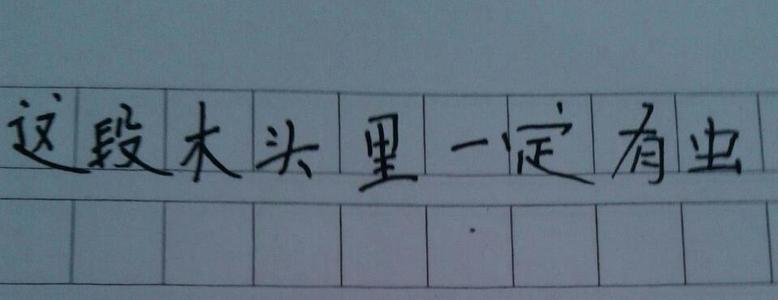 这段木头里一定有虫